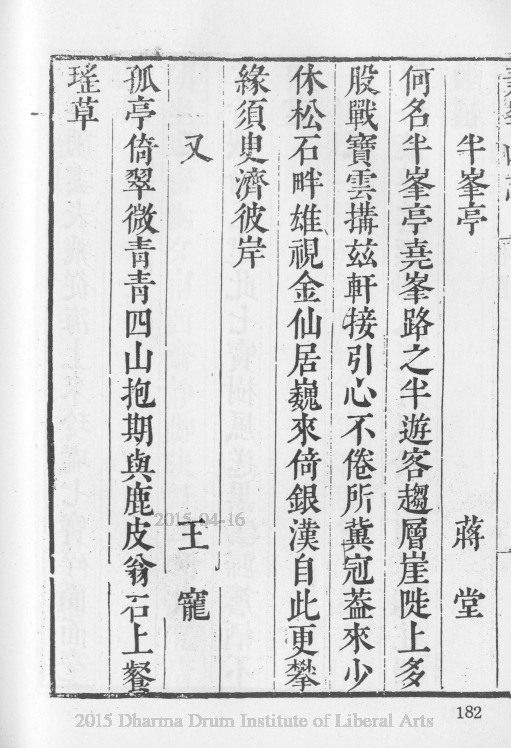 半峯亭 蔣堂
何名半峯亭堯峯路之半遊客趨層崖陡上多
股戰寶雲搆茲軒接引心不倦所冀冠葢來少
休松石畔雄視金仙居巍來倚銀漢自此更攀
緣須史濟彼岸
又 王寵
孤亭倚翠微青青四山抱期與鹿皮翁石上餐
瑤草
2015-04-16
182
2015 Dharma Drum Institute of Liberal Arts